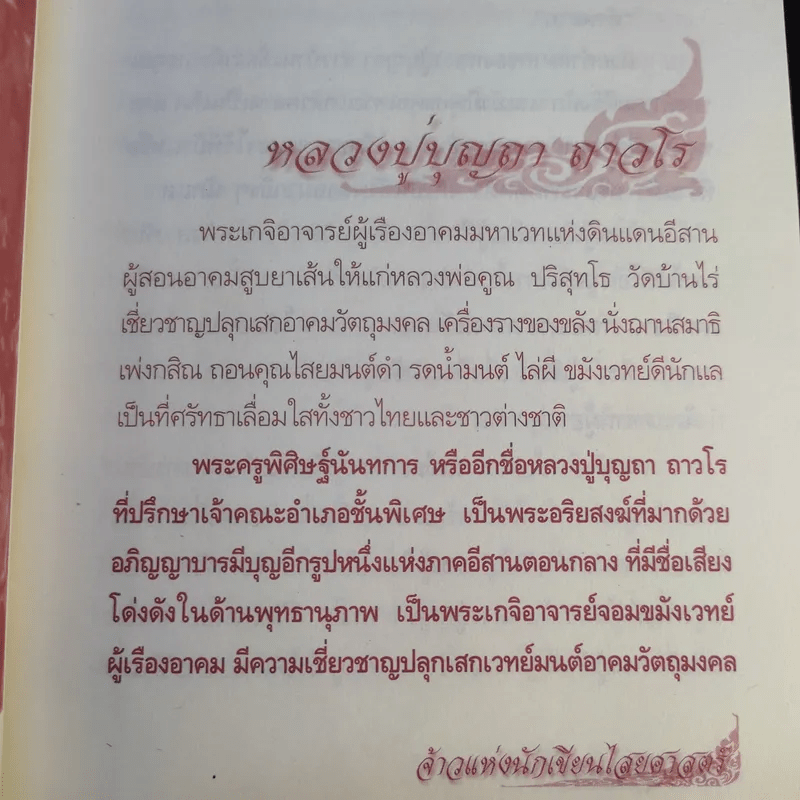 หลวงปู่บุญถา ถาวโร
พระเกจิอาจารย์ผู้เรืองอาคมมหาเวทแห่งดินแดนอีสาน
ผู้สอนอาคมสูบยาเส้นให้แก่หลวงพ่อคูณ ปริสุทโธ วัดบ้านไร่
เชี่ยวชาญปลุกเสกอาคมวัตถุมงคล เครื่องรางของขลัง นั่งฌานสมาธิ
เพ่งกสิณ ถอนคุณไสยมนต์ดำ รดน้ำมนต์ ไล่ผี ขมังเวทย์ดีนักแล
เป็นที่ศรัทธาเลื่อมใสทั้งชาวไทยและชาวต่างชาติ
พระครูพิศิษฐ์นันทการ หรืออีกชื่อหลวงปู่บุญถา ถาวโร
ที่ปรึกษาเจ้าคณะอำเภอชั้นพิเศษ เป็นพระอริยสงฆ์ที่มากด้วย
อภิญญาบารมีบุญอีกรูปหนึ่งแห่งภาคอีสานตอนกลาง ที่มีชื่อเสียง
โด่งดังในด้านพุทธานุภาพ เป็นพระเกจิอาจารย์จอมขมังเวทย์
ผู้เรืองอาคม มีความเชี่ยวชาญปลุกเสกเวทย์มนต์อาคมวัตถุมงคล
จ้าวแห่งนักเขียนไสยศาสตร์